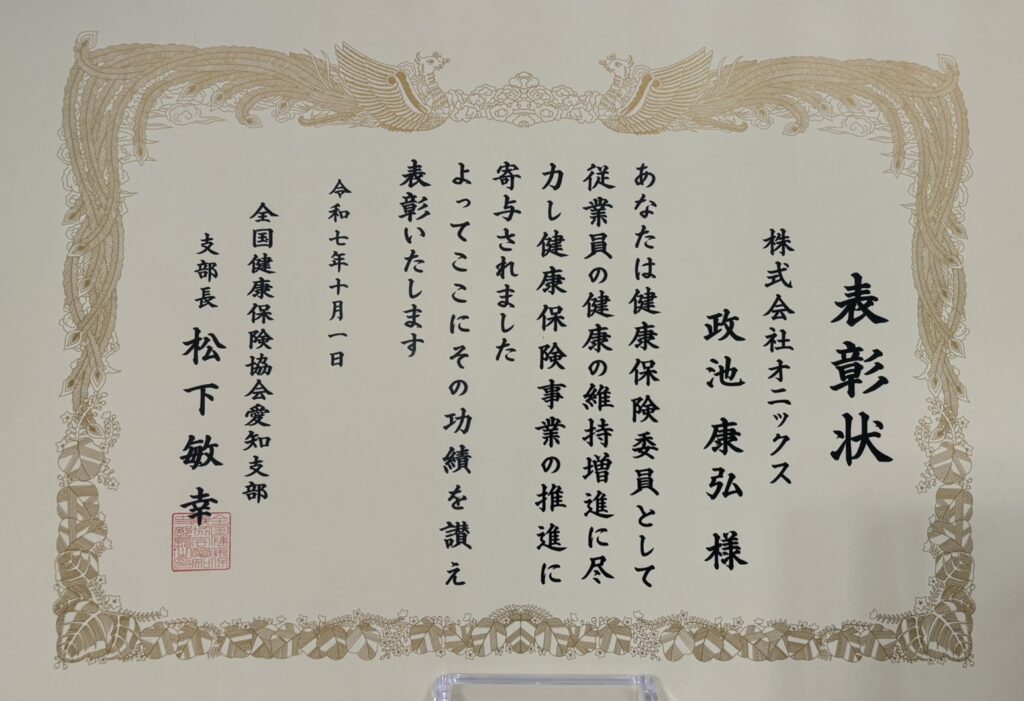 表彰状
株式会社オニックス
政池 康弘 様
あなたは健康保険委員として
従業員の健康の維持増進に尽
力し健康保険事業の推進に
寄与されました
よってここにその功績を讃え
表彰いたします
令和七年十月一日
全国健康保険協会愛知支部
支部長 松下敏幸